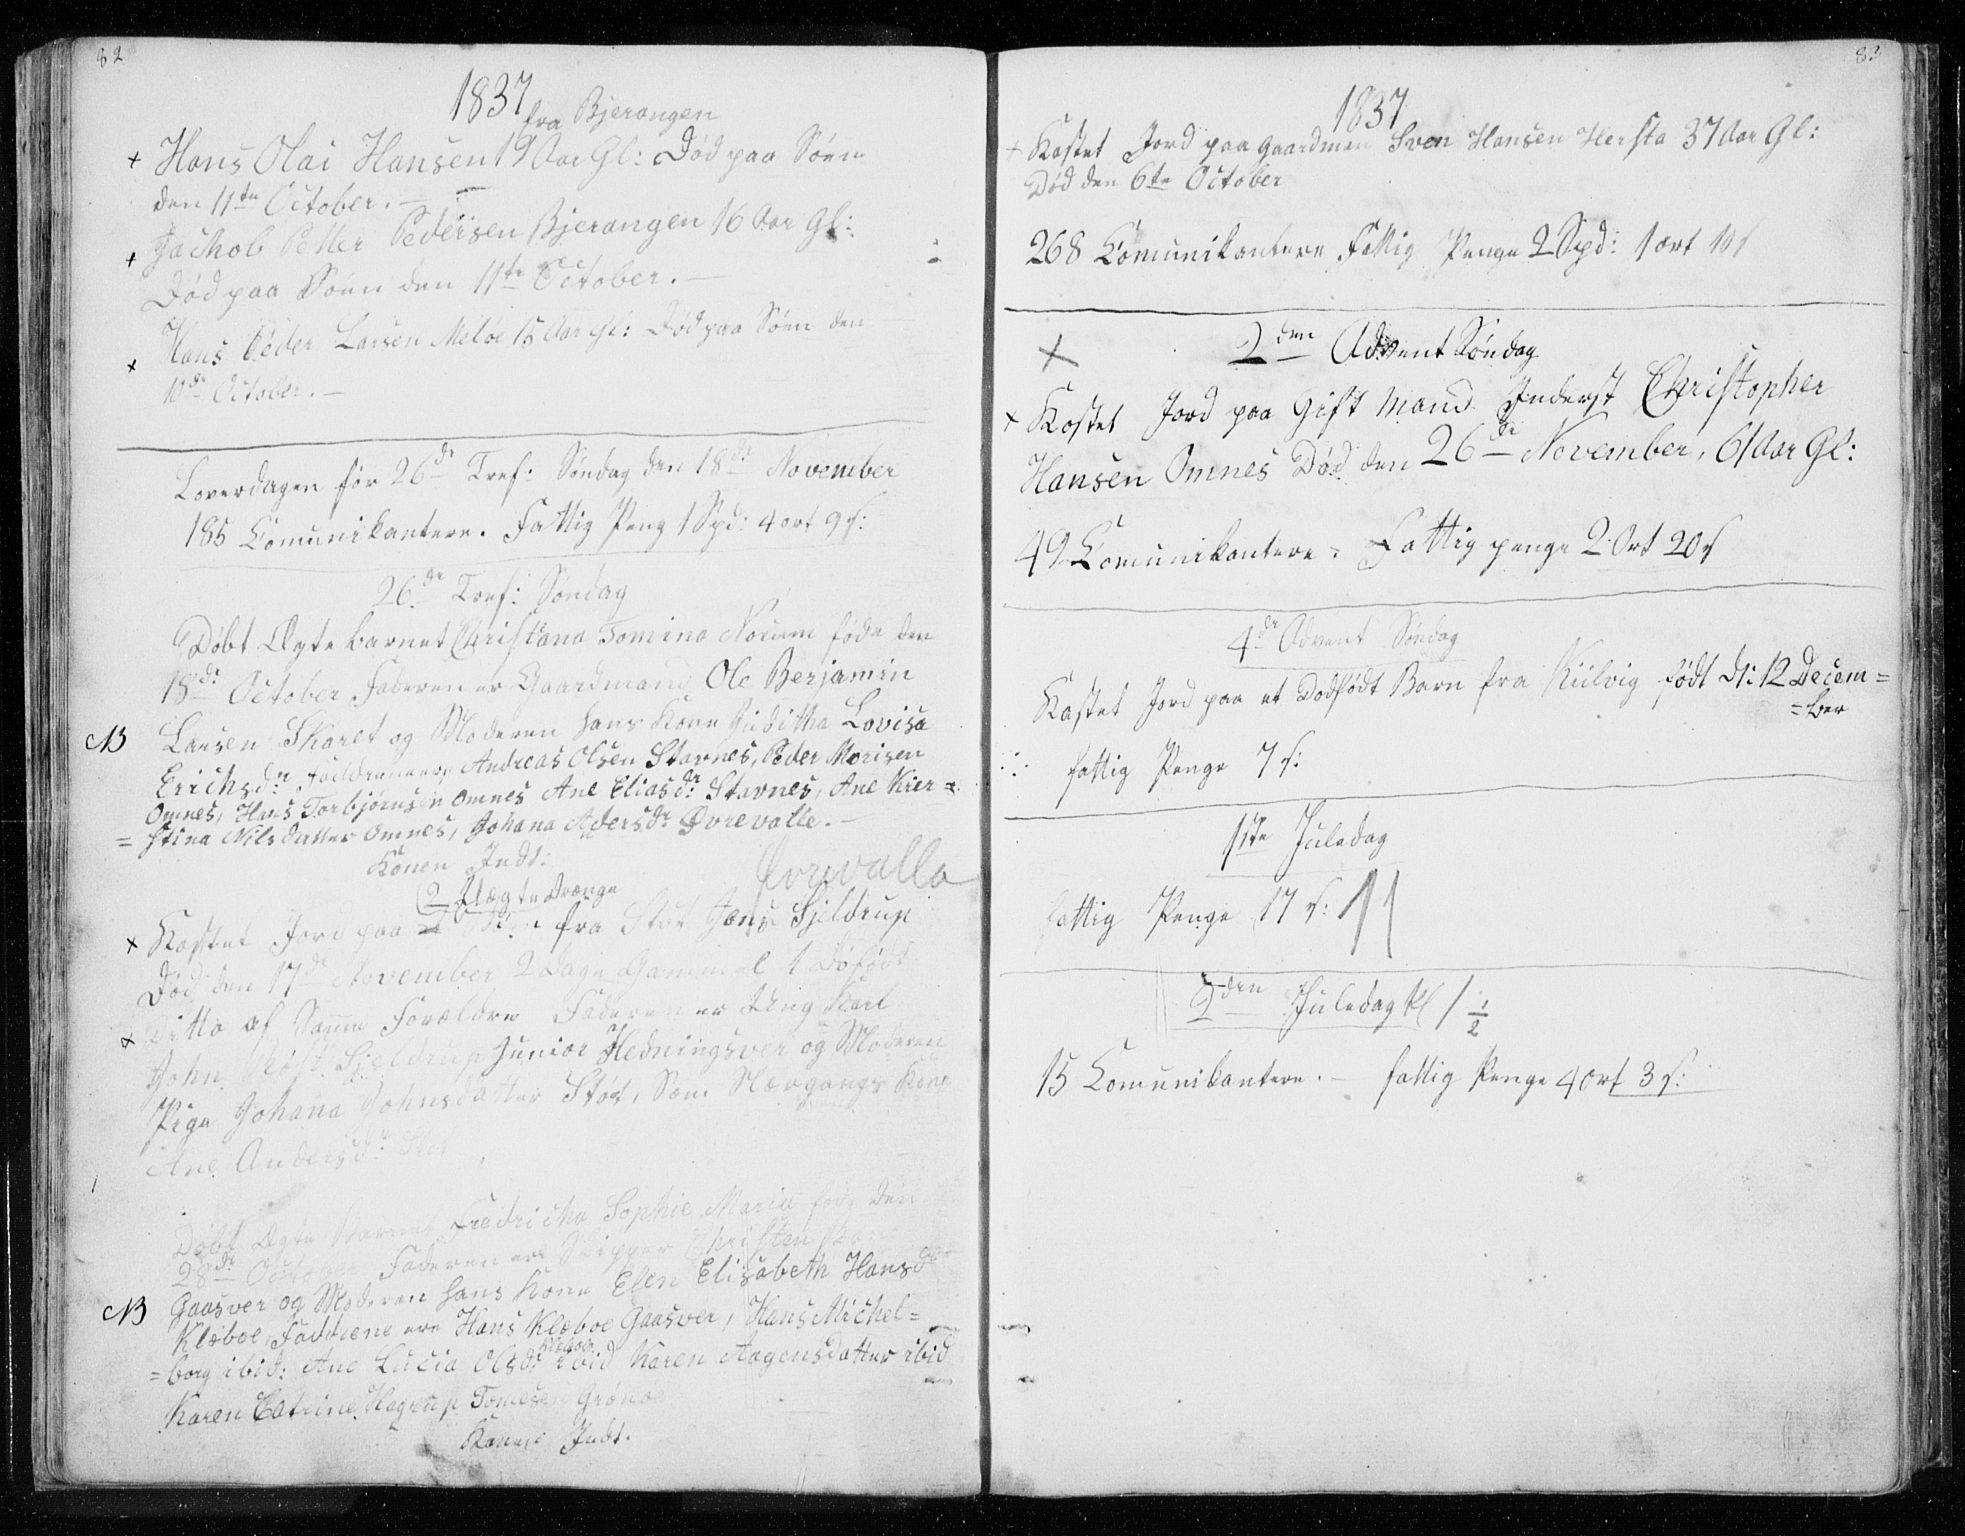 82
1837
fra Bjerangen
+ Hans Olai Hansen 19 Aar Gl: Død paa Søen
den 11te October. —
+ Jachob Petter Pedersen Bjerangen 16 Aar Gl:
Død paa Søen den 11te October. —
+ Hans Peder Larsen Meløe 15 Aar gl: Død paa Søen den
10de October. —
Løverdagen før 26de Tref: Søndag den 18de November
185 Comunikantere. Fattig Peng 1 Spd: 4 ort 9 s:
26de Tref: Søndag
Døbt Ægte barnet Christana Tomina Norum føde den
18de October Faderen er Gaardmand Ole Berjamin
NB Larsen Skaret og Moderen hans Kone Juditha Lovisa
Erichsdr: Faddrene ere Andreas Olsen Stavnes, Peder Morisen
Omnes, Hans Torbjørnsen Omnes Ane Eliasdr: Stavnes, Ane Kier=
= stina Nilsdatter Omnes, Johana Adersdr Øvrevalle. —
Konen Indt: Øvrevalla
2 Uægte Drænge
+ Kastet Jord paa fra Støt Jens Sjeldrup
Død den 17de November 2 Dage Gammel 1 Døfødt
+ Ditto af Samme Forældre Faderen er Ung Karl
John Røst Sjeldrup Junior Hedningsver og Moderen
Pige Johana Johnsdatter Støt, Som Nærgangs Kone
Ane Andersdr: Støt
Døbt Ægte Barnet Fredricha Sophie Maria føde den
28de October Faderen er Skipper Christen
Gaasver og Moderen hans Kone Elen Elisabeth Hansdr
NB Klæboe, Faddrene ere Hans Klæboe Gaasver, Hans Michel=
= borg ibid: Ane Lucia Olsdr: Klæboe ibid Karen Aagensdatter ibid
Karen Catrine Hagrup Tomesen Grønøe
Konen Indt.
83
1837
+ Kastet Jord paa Gaardman Sven Hansen Hersta 37 Aar Gl:
Død den 6te October
268 Comunikantere Fattig Penge 2 Spd: 1 ort 10 s
+ 2den Advent Søndag
+ Kastet Jord paa Gift Mand Inderst Christopher
Hansen Omnes Død den 26de November, 61 Aar Gl:
49 Comunikantere. Fattig penge 2 Ort 20 s
4de Advent Søndag
Kastet Jord paa et Dødfødt Barn fra Kiilvig født d: 12 Decem=
= ber
fattig Penge 7 s:
1ste Juledag
fattig Penge 17 s:
2den Juledag kl 1 1/2
15 Comunikantere. — fattig Penge 4 Ort 3 s: